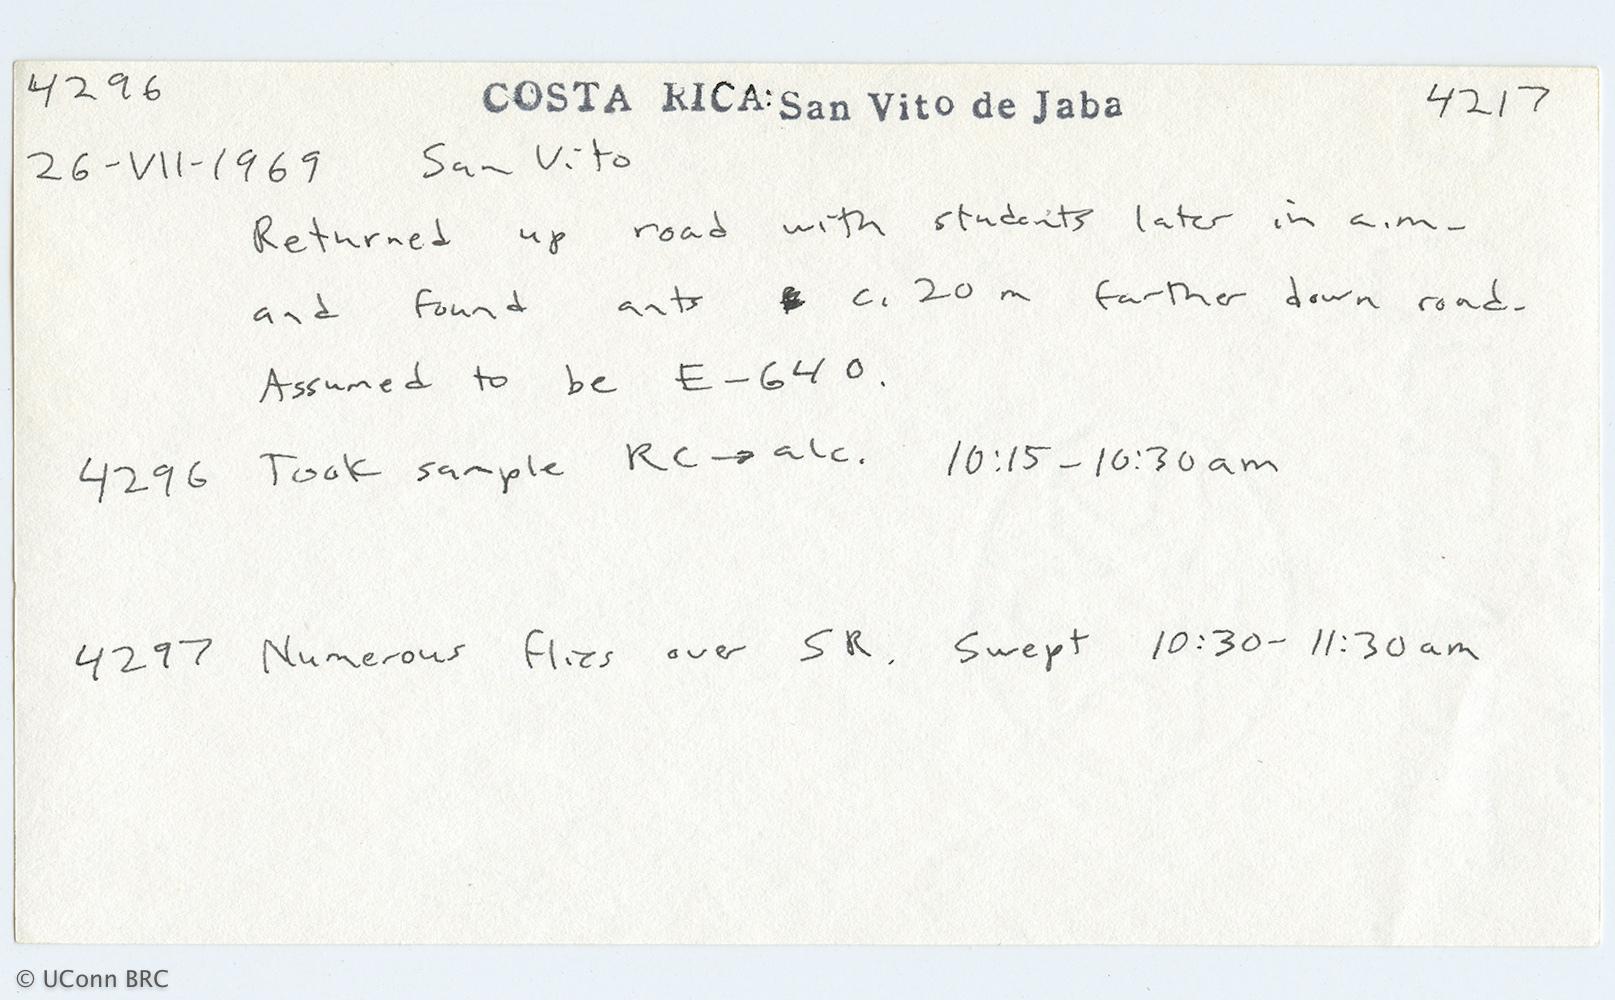 4296 COSTA RICA: San Vito de Jaba 4217
26-VII-1969 San Vito
Returned up road with students later in a.m.
and found ants c. 20 m farther down road.
Assumed to be E-640.
4296 Took sample RC→alc. 10:15-10:30 am
4297 Numerous flies over SR. Swept 10:30-11:30 am
© UConn BRC